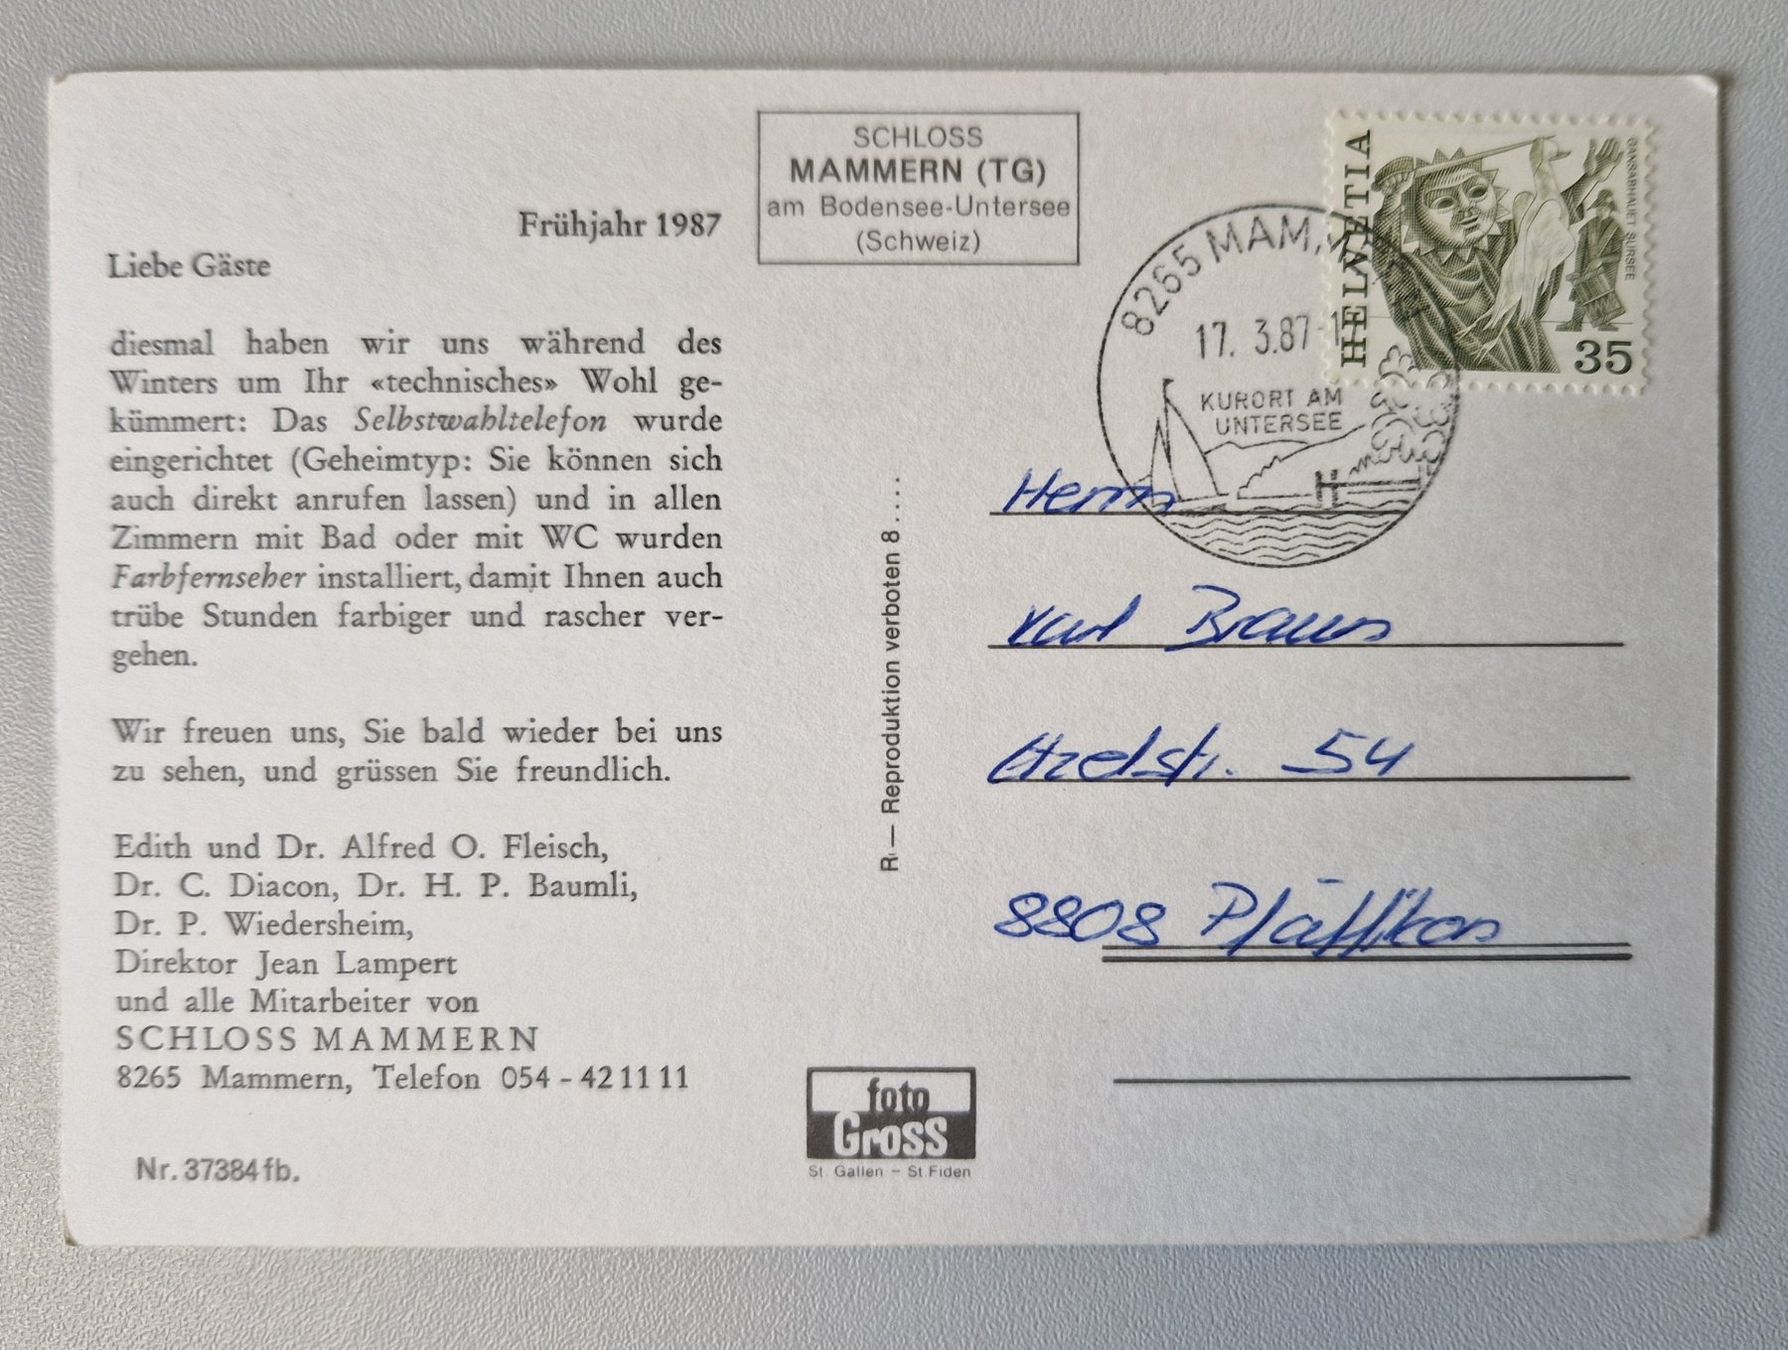 SCHLOSS
MAMMERN (TG)
am Bodensee-Untersee
(Schweiz)
Frühjahr 1987
Liebe Gäste
diesmal haben wir uns während des
Winters um Ihr «technisches» Wohl ge-
kümmert: Das Selbstwahltelefon wurde
eingerichtet (Geheimtyp: Sie können sich
auch direkt anrufen lassen) und in allen
Zimmern mit Bad oder mit WC wurden
Farbfernseher installiert, damit Ihnen auch
trübe Stunden farbiger und rascher ver-
gehen.
Wir freuen uns, Sie bald wieder bei uns
zu sehen, und grüssen Sie freundlich.
Edith und Dr. Alfred O. Fleisch,
Dr. C. Diacon, Dr. H. P. Baumli,
Dr. P. Wiedersheim,
Direktor Jean Lampert
und alle Mitarbeiter von
SCHLOSS MAMMERN
8265 Mammern, Telefon 054 - 42 11 11
Nr. 37384 fb.
R — Reproduktion verboten 8....
foto
Gross
St. Gallen - St. Fiden
HELVETIA
GANSABHAUET SURSEE
35
8265
17. 3.87
KURORT AM
UNTERSEE
Herrn
Karl Braun
Etzelstr. 54
8808 Pfäffikon